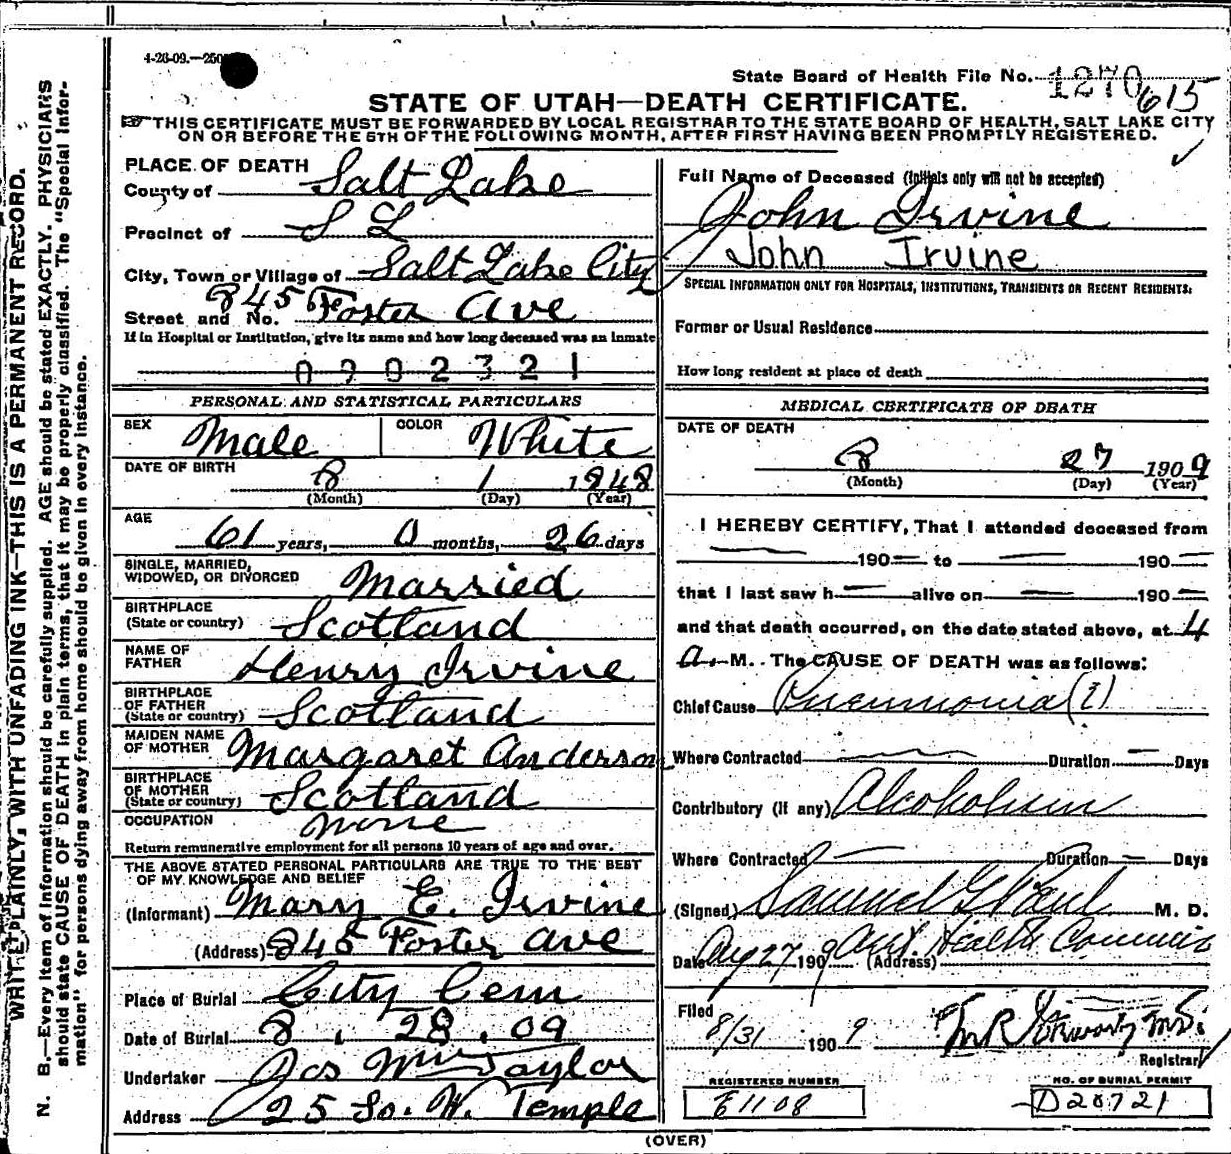 4-26-09.—250
State Board of Health File No. 1270 615
STATE OF UTAH—DEATH CERTIFICATE.
☞THIS CERTIFICATE MUST BE FORWARDED BY LOCAL REGISTRAR TO THE STATE BOARD OF HEALTH, SALT LAKE CITY
ON OR BEFORE THE 5TH OF THE FOLLOWING MONTH, AFTER FIRST HAVING BEEN PROMPTLY REGISTERED.
WRITE PLAINLY, WITH UNFADING INK—THIS IS A PERMANENT RECORD.
N. B.—Every item of information should be carefully supplied. AGE should be stated EXACTLY. PHYSICIANS
should state CAUSE OF DEATH in plain terms, that it may be properly classified. The "Special Infor-
mation" for persons dying away from home should be given in every instance.
PLACE OF DEATH
County of Salt Lake
Precinct of S L
City, Town or Village of Salt Lake City
Street and No. 845 Foster Ave
If in Hospital or Institution, give its name and how long deceased was an inmate
0902321
PERSONAL AND STATISTICAL PARTICULARS
SEX Male COLOR White
DATE OF BIRTH 8 1 1848
(Month) (Day) (Year)
AGE
61 years, 0 months, 26 days
SINGLE, MARRIED,
WIDOWED, OR DIVORCED Married
BIRTHPLACE
(State or country) Scotland
NAME OF
FATHER Henry Irvine
BIRTHPLACE
OF FATHER
(State or country) Scotland
MAIDEN NAME
OF MOTHER Margaret Anderson
BIRTHPLACE
OF MOTHER
(State or country) Scotland
OCCUPATION none
Return remunerative employment for all persons 10 years of age and over.
THE ABOVE STATED PERSONAL PARTICULARS ARE TRUE TO THE BEST
OF MY KNOWLEDGE AND BELIEF
(Informant) Mary E. Irvine
(Address) 845 Foster Ave
Place of Burial City Cem
Date of Burial 8. 28. 09
Undertaker Jos Wm Taylor
Address 25 So. W. Temple
Full Name of Deceased (Initials only will not be accepted)
John Irvine
John Irvine
SPECIAL INFORMATION ONLY FOR HOSPITALS, INSTITUTIONS, TRANSIENTS OR RECENT RESIDENTS:
Former or Usual Residence
How long resident at place of death
MEDICAL CERTIFICATE OF DEATH
DATE OF DEATH
8 27 1909
(Month) (Day) (Year)
I HEREBY CERTIFY, That I attended deceased from
190 to 190
that I last saw h alive on 190
and that death occurred, on the date stated above, at 4
a. M. The CAUSE OF DEATH was as follows:
Chief Cause Pneumonia (?)
Where Contracted Duration Days
Contributory (if any) Alcoholism
Where Contracted Duration Days
(Signed) Samuel G Paul M. D.
Date Aug 27 1909 (Address) Asst. Health Commis
Filed
8/31 1909
Registrar
REGISTERED NUMBER
E1108
NO. OF BURIAL PERMIT
D20721
(OVER)